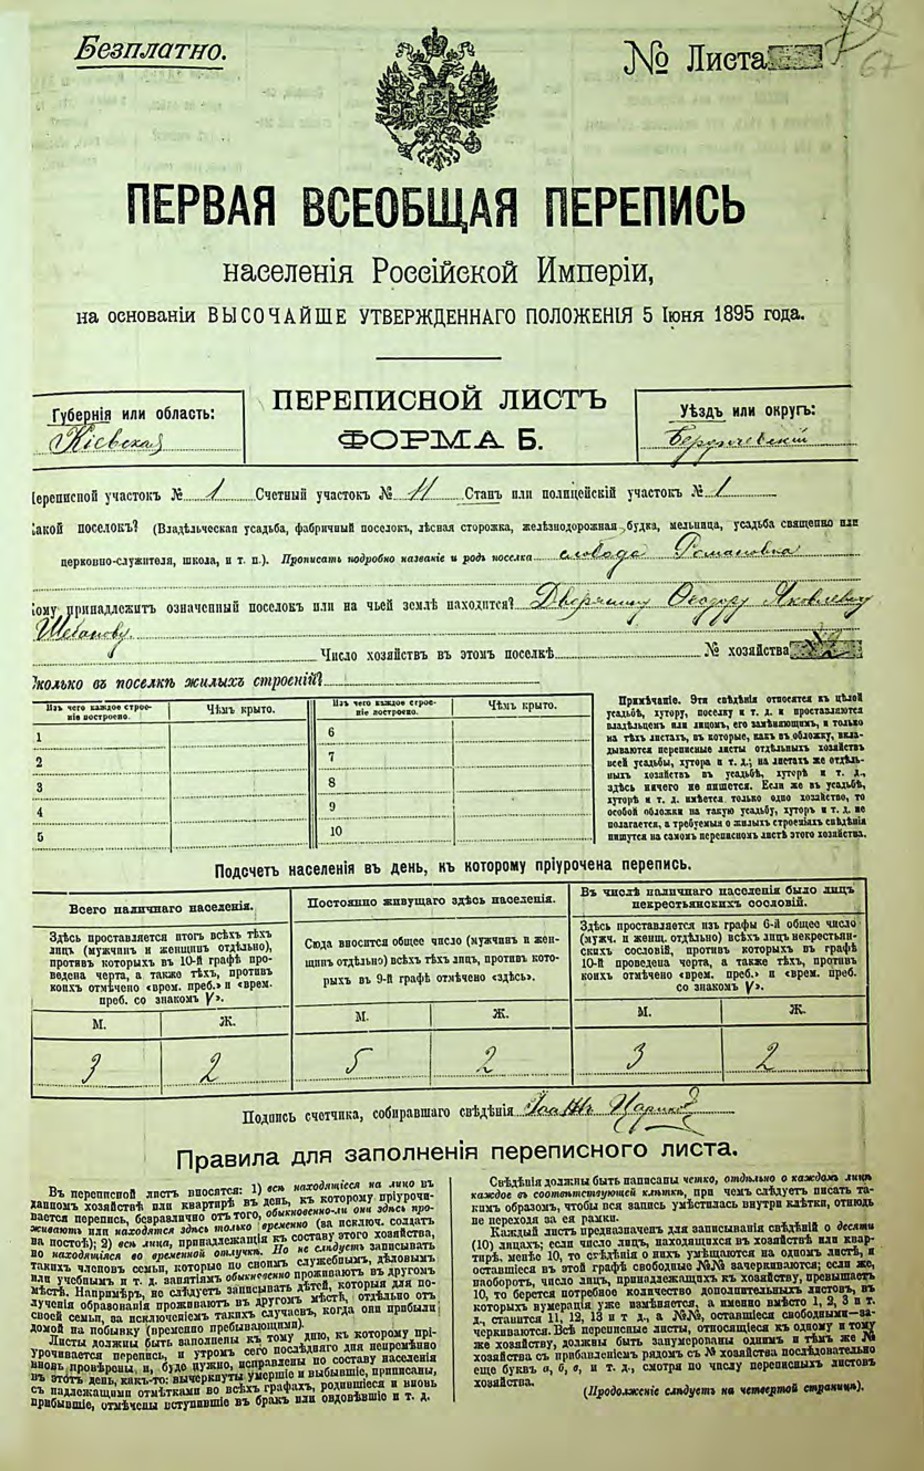 Безплатно.
№ Листа
73
67
ПЕРВАЯ ВСЕОБЩАЯ ПЕРЕПИСЬ
населенія Россійской Имперіи,
на основаніи ВЫСОЧАЙШЕ УТВЕРЖДЕННАГО ПОЛОЖЕНІЯ 5 Іюня 1895 года.
Губернія или область:
Кіевская
ПЕРЕПИСНОЙ ЛИСТЪ
ФОРМА Б.
Уѣздъ или округъ:
Бердичевскій
ереписной участокъ № 1 Счетный участокъ № 11 Станъ или полицейскій участокъ № 1
акой поселокъ? (Владѣльческая усадьба, фабричный поселокъ, лѣсная сторожка, желѣзнодорожная будка, мельница, усадьба священно или
церковно-служителя, школа, и т. п.). Прописать подробно названіе и родъ поселка слобода Романовка
ому принадлежитъ означенный поселокъ или на чьей землѣ находится? Дворянину Ѳеодору Яковлевичу
Число хозяйствъ въ этомъ поселкѣ № хозяйства
колько въ поселкѣ жилыхъ строеній?
Изъ чего каждое строе-
ніе построено.
Чѣмъ крыто.
Изъ чего каждое строе-
ніе построено.
Чѣмъ крыто.
1
2
3
4
5
6
7
8
9
10
Примѣчаніе. Эти свѣдѣнія относятся къ цѣлой
усадьбѣ, хутору, поселку и т. д. и проставляются
владѣльцемъ или лицомъ, его замѣняющимъ, и только
на тѣхъ листахъ, въ которые, какъ въ обложку, вкла-
дываются переписные листы отдѣльныхъ хозяйствъ
всей усадьбы, хутора и т. д.; на листахъ же отдѣль-
ныхъ хозяйствъ въ усадьбѣ, хуторѣ и т. д.,
здѣсь ничего не пишется. Если же въ усадьбѣ,
хуторѣ и т. д. имѣется только одно хозяйство, то
особой обложки на такую усадьбу, хуторъ и т. д. не
полагается, а требуемыя о жилыхъ строеніяхъ свѣдѣнія
пишутся на самомъ переписномъ листѣ этого хозяйства.
Подсчетъ населенія въ день, къ которому пріурочена перепись.
Всего наличнаго населенія.
Здѣсь проставляется итогъ всѣхъ тѣхъ
лицъ (мужчинъ и женщинъ отдѣльно),
противъ которыхъ въ 10-й графѣ про-
ведена черта, а также тѣхъ, противъ
коихъ отмѣчено «врем. преб.» и «врем.
преб. со знакомъ V».
М. Ж.
3 2
Постоянно живущаго здѣсь населенія.
Сюда вносится общее число (мужчинъ и жен-
щинъ отдѣльно) всѣхъ тѣхъ лицъ, противъ кото-
рыхъ въ 9-й графѣ отмѣчено «здѣсь».
М. Ж.
5 2
Въ числѣ наличнаго населенія было лицъ
некрестьянскихъ сословій.
Здѣсь проставляется изъ графы 6-й общее число
(мужч. и женщ. отдѣльно) всѣхъ лицъ некрестьян-
скихъ сословій, противъ которыхъ въ графѣ
10-й проведена черта, а также тѣхъ, противъ
коихъ отмѣчено «врем. преб.» и «врем. преб.
со знакомъ V».
М. Ж.
3 2
Подпись счетчика, собиравшаго свѣдѣнія
Правила для заполненія переписного листа.
Въ переписной листъ вносятся: 1) всѣ находящіеся на лицо въ
данномъ хозяйствѣ или квартирѣ въ день, къ которому пріурочи-
вается перепись, безразлично отъ того, обыкновенно-ли они здѣсь про-
живаютъ или находятся здѣсь только временно (за исключ. солдатъ
на постоѣ); 2) всѣ лица, принадлежащія къ составу этого хозяйства,
но находящіяся во временной отлучкѣ. Но не слѣдуетъ записывать
такихъ членовъ семьи, которые по своимъ служебнымъ, дѣловымъ
или учебнымъ и т. д. занятіямъ обыкновенно проживаютъ въ другомъ
мѣстѣ. Напримѣръ, не слѣдуетъ записывать дѣтей, которыя для по-
лученія образованія проживаютъ въ другомъ мѣстѣ, отдѣльно отъ
своей семьи, за исключеніемъ такихъ случаевъ, когда они прибыли
домой на побывку (временно пребывающими).
Листы должны быть заполнены къ тому дню, къ которому прі-
урочивается перепись, и утромъ сего послѣдняго дня непремѣнно
вновь провѣрены и, буде нужно, исправлены по составу населенія
въ этотъ день, какъ-то: вычеркнуты умершіе и выбывшіе, приписаны,
съ надлежащими отмѣтками во всѣхъ графахъ, родившіеся и вновь
прибывшіе, отмѣчены вступившіе въ бракъ или овдовѣвшіе и т. д.
Свѣдѣнія должны быть написаны четко, отдѣльно о каждомъ лицѣ
каждое въ соотвѣтствующей клѣткѣ, при чемъ слѣдуетъ писать та-
кимъ образомъ, чтобы вся запись умѣстилась внутри клѣтки, отнюдь
не переходя за ея рамки.
Каждый листъ предназначенъ для записыванія свѣдѣній о десяти
(10) лицахъ; если число лицъ, находящихся въ хозяйствѣ или квар-
тирѣ, менѣе 10, то свѣдѣнія о нихъ умѣщаются на одномъ листѣ, и
оставшіеся въ этой графѣ свободные №№ зачеркиваются; если же,
наоборотъ, число лицъ, принадлежащихъ къ хозяйству, превышаетъ
10, то берется потребное количество дополнительныхъ листовъ, въ
которыхъ нумерація уже измѣняется, а именно вмѣсто 1, 2, 3 и т.
д., ставится 11, 12, 13 и т д., а №№, оставшіеся свободными—за-
черкиваются. Всѣ переписные листы, относящіеся къ одному и тому
же хозяйству, должны быть занумерованы однимъ и тѣмъ же №
хозяйства съ прибавленіемъ рядомъ съ № хозяйства послѣдовательно
еще буквъ а, б, в, и т. д., смотря по числу переписныхъ листовъ
хозяйства.
(Продолженіе слѣдуетъ на четвертой страницѣ).